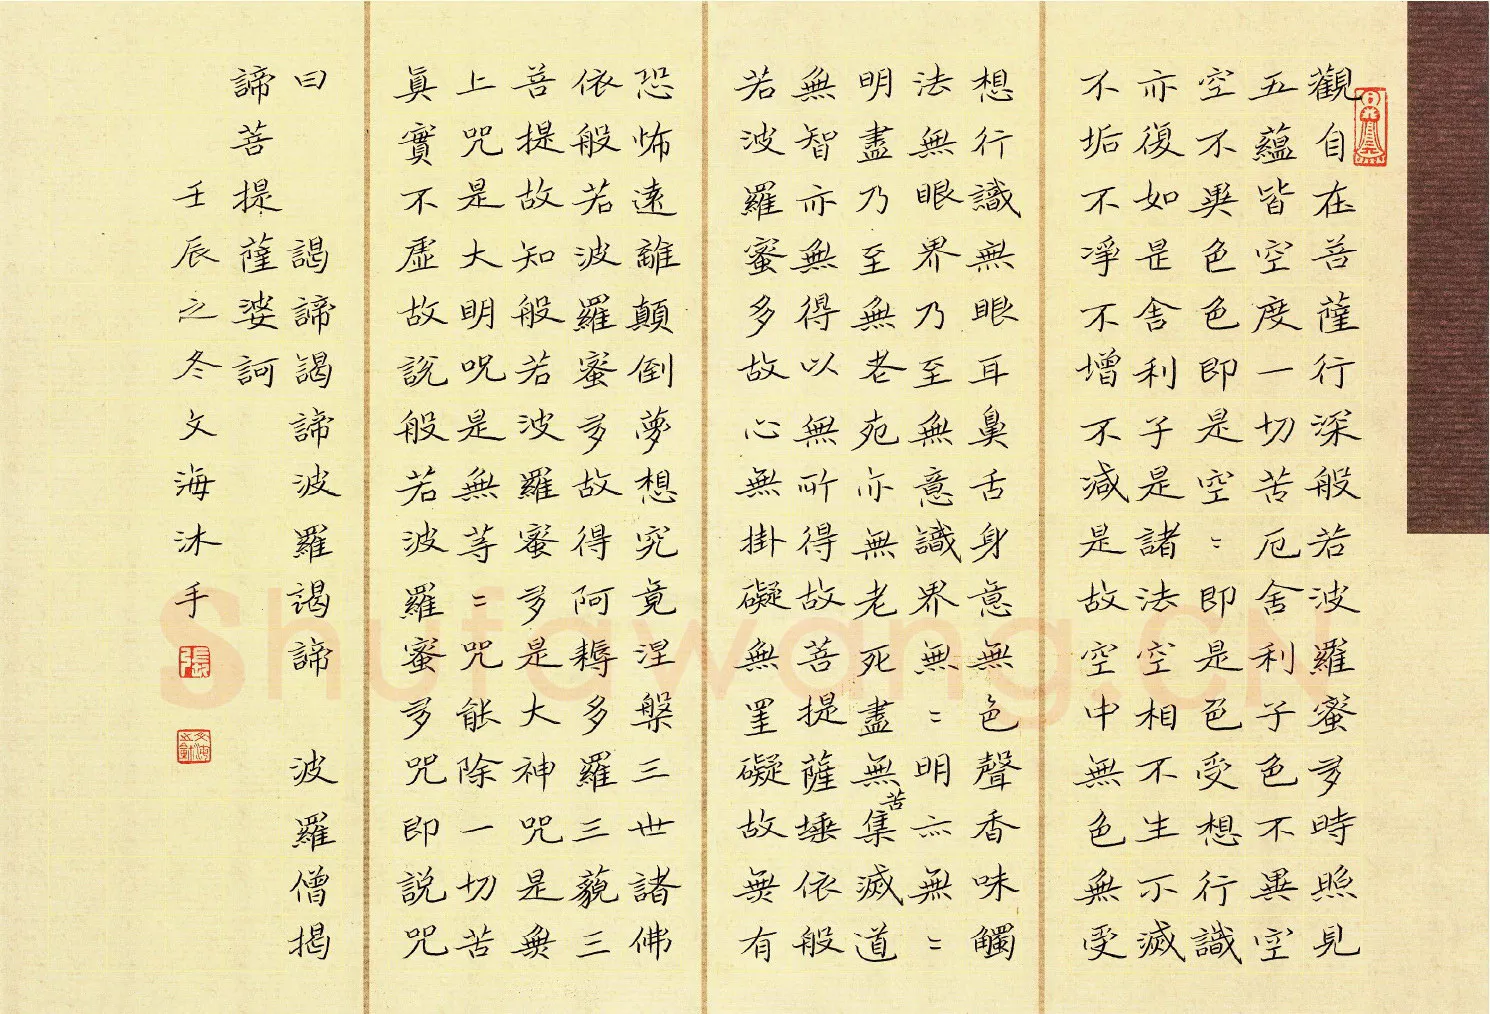 觀自在菩薩行深般若波羅蜜多時照見
五蘊皆空度一切苦厄舍利子色不異空
空不異色色即是空〻即是色受想行識
亦復如是舍利子是諸法空相不生不滅
不垢不淨不增不減是故空中無色無受
想行識無眼耳鼻舌身意無色聲香味觸
法無眼界乃至無意識界無〻明亦無〻
明盡乃至無老死亦無老死盡無苦集滅道
無智亦無得以無所得故菩提薩埵依般
若波羅蜜多故心無掛礙無罣礙故無有
恐怖遠離顛倒夢想究竟涅槃三世諸佛
依般若波羅蜜多故得阿耨多羅三藐三
菩提故知般若波羅蜜多是大神咒是無
上咒是大明咒是無等〻咒能除一切苦
真實不虛故說般若波羅蜜多咒即說咒
曰 謁諦謁諦波羅謁諦 波羅僧揭
諦菩提薩婆訶
壬辰之冬文海沐手
張
Shufawang.CN